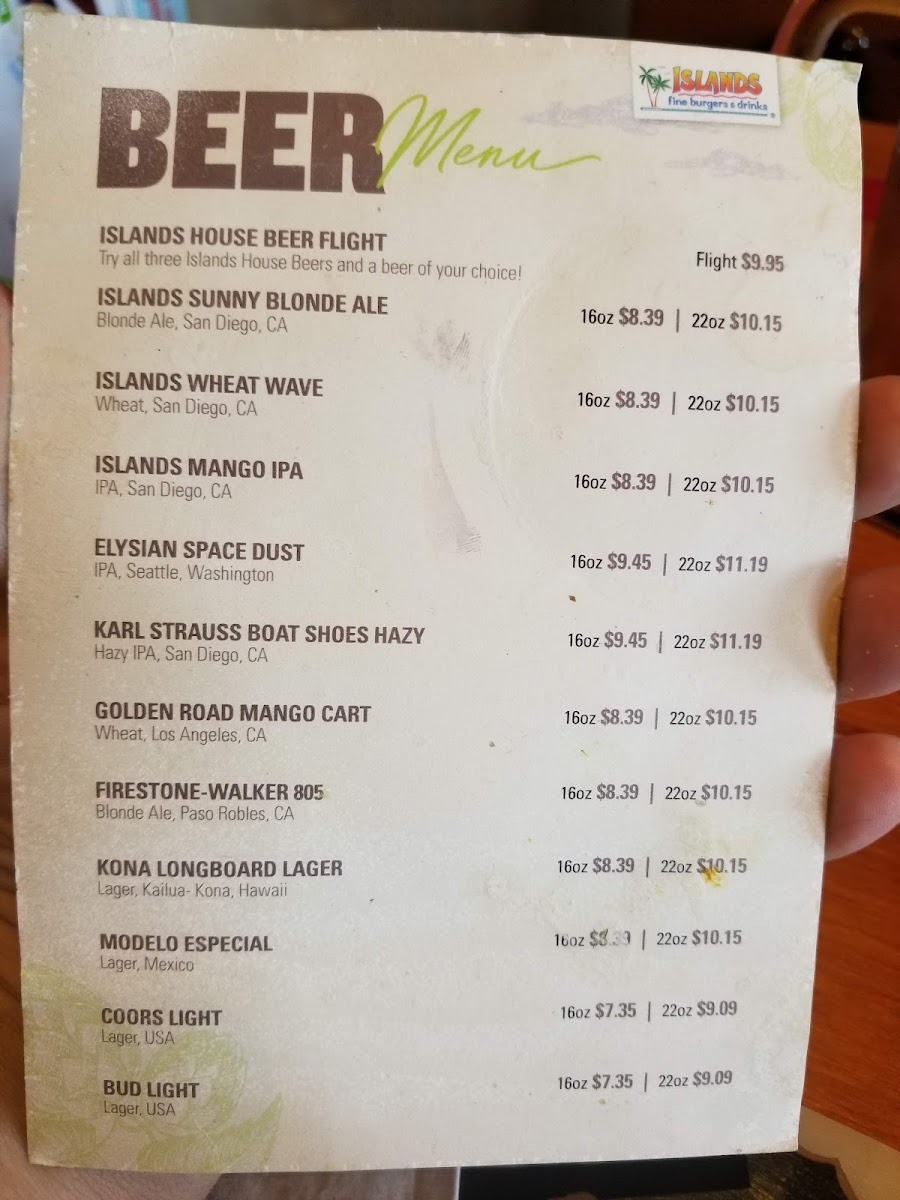 ISLANDS
fine burgers & drinks
BEER Menu
ISLANDS HOUSE BEER FLIGHT
Try all three Islands House Beers and a beer of your choice!
Flight $9.95
ISLANDS SUNNY BLONDE ALE
Blonde Ale, San Diego, CA
16oz $8.39 | 22oz $10.15
ISLANDS WHEAT WAVE
Wheat, San Diego, CA
16oz $8.39 | 22oz $10.15
ISLANDS MANGO IPA
IPA, San Diego, CA
16oz $8.39 | 22oz $10.15
ELYSIAN SPACE DUST
IPA, Seattle, Washington
16oz $9.45 | 22oz $11.19
KARL STRAUSS BOAT SHOES HAZY
Hazy IPA, San Diego, CA
16oz $9.45 | 22oz $11.19
GOLDEN ROAD MANGO CART
Wheat, Los Angeles, CA
16oz $8.39 | 22oz $10.15
FIRESTONE-WALKER 805
Blonde Ale, Paso Robles, CA
16oz $8.39 | 22oz $10.15
KONA LONGBOARD LAGER
Lager, Kailua- Kona, Hawaii
16oz $8.39 | 22oz $10.15
MODELO ESPECIAL
Lager, Mexico
16oz | 22oz $10.15
COORS LIGHT
Lager, USA
16oz $7.35 | 22oz $9.09
BUD LIGHT
Lager, USA
16oz $7.35 | 22oz $9.09